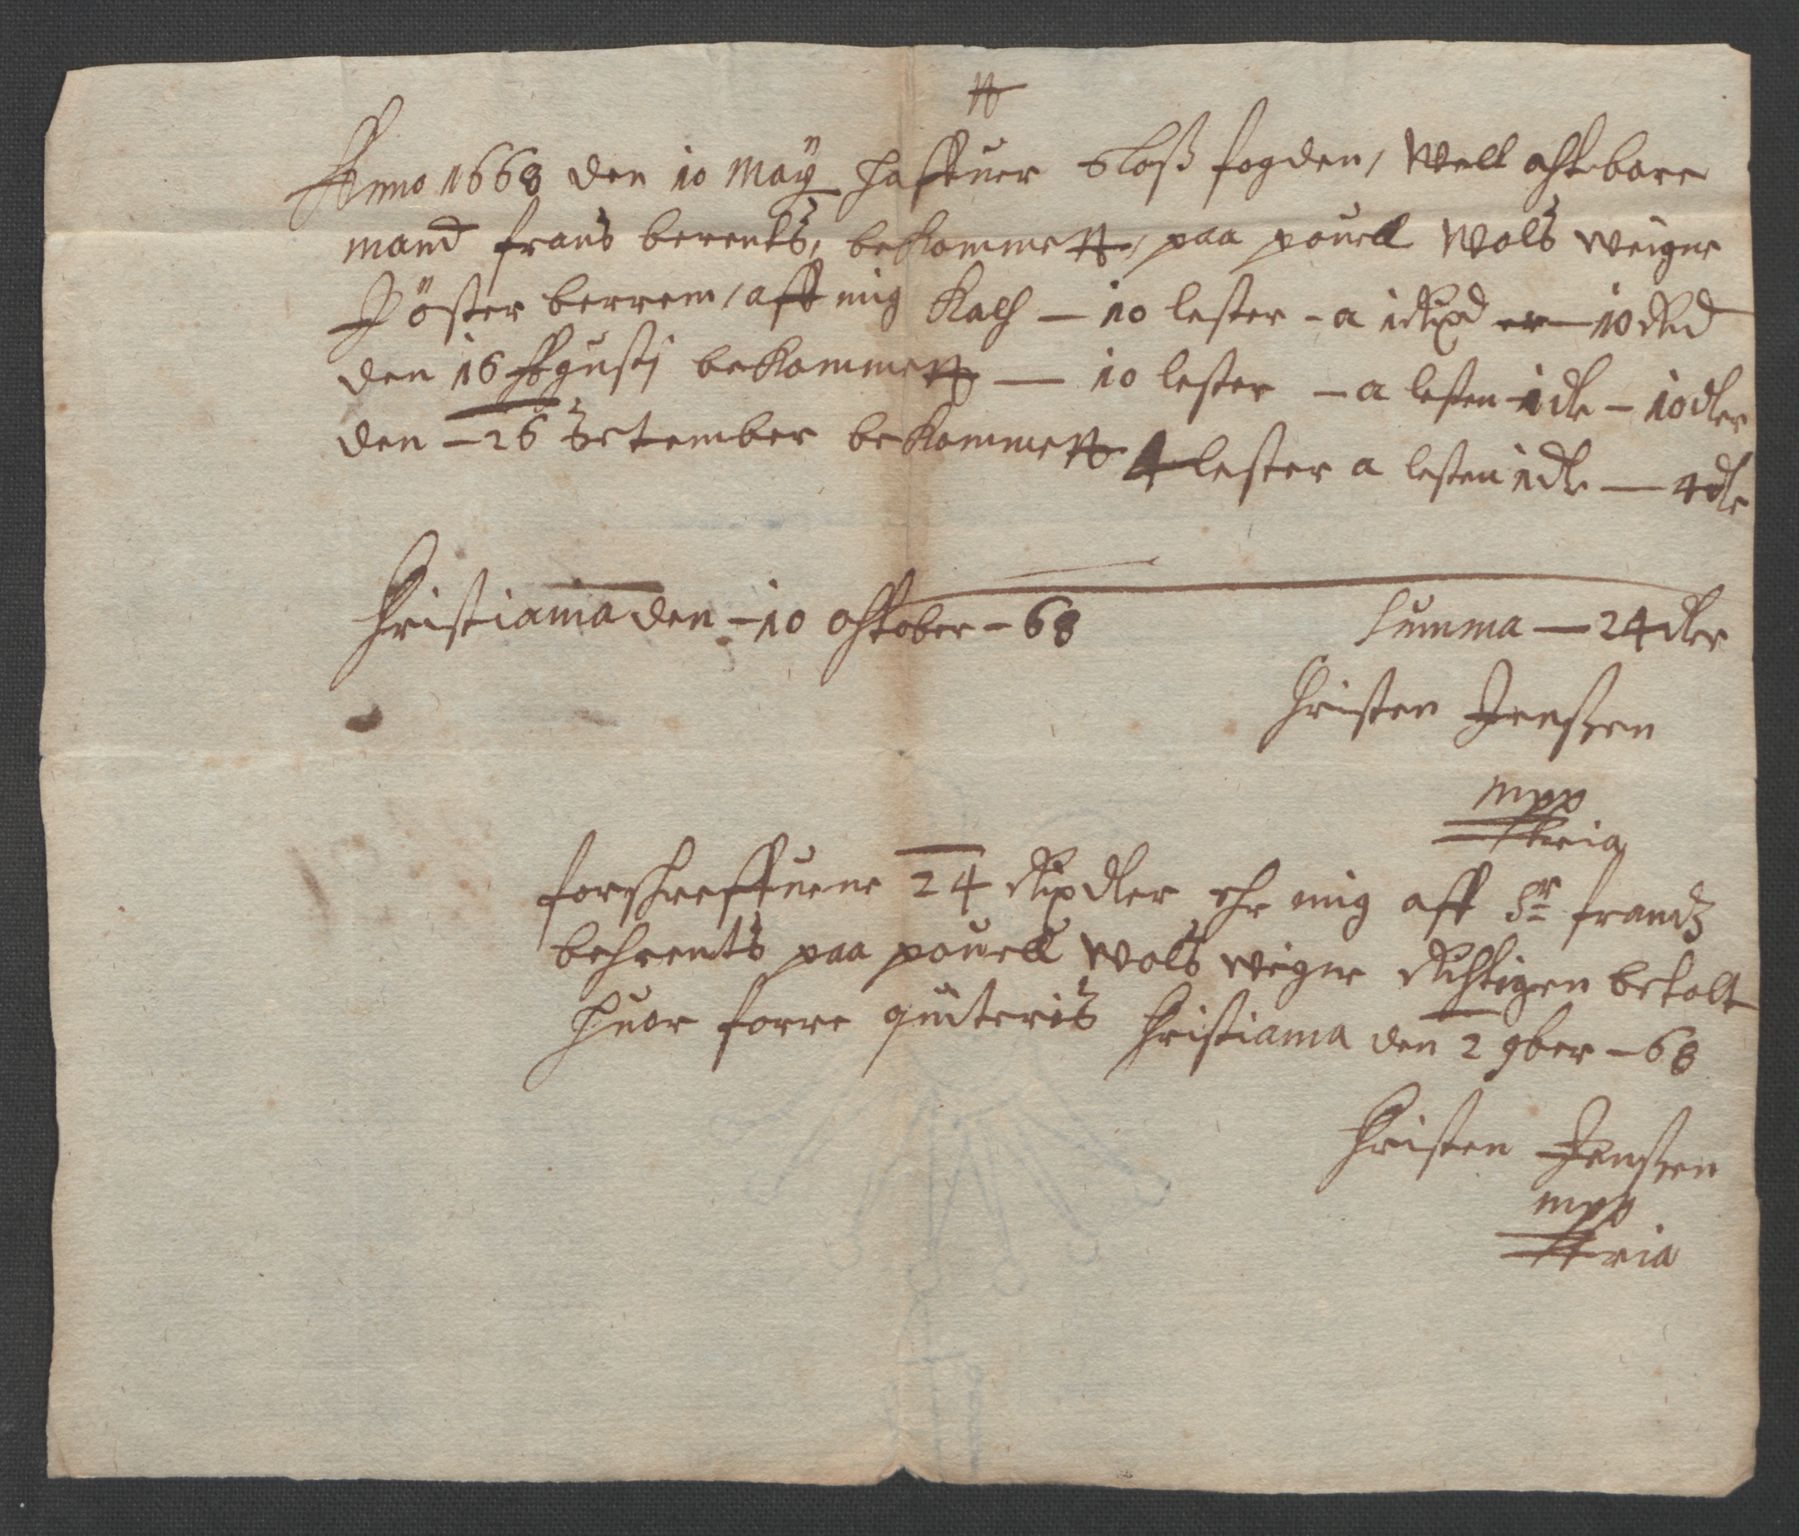 Anno 1668 den 10 Maÿ haffuer Sloß fogden, Well acht bare
mand frans berents, bekommett, paa pouell Wols weigne
aff mig Kalch – 10 lester – a 1 Rixd er – 10 Rd
den 16 Agustj bekommett — 10 lester – a lesten 1 dlr – 10 dler
den – 26 Setember bekommett 4 lester a lesten 1 dlr — 4 dlr
Christiania den – 10 ochtober – 68
Summa — 24 dler
Christen Jenssen
mpp
tria
forschreffuene 24 Rixdler ehr mig aff Sr frandz
behrents paa pouell Wols wegne Richtigen betalt
huor forre quiteris Christiania den 2 9ber – 68
Christen Jenssen
mpp
tria